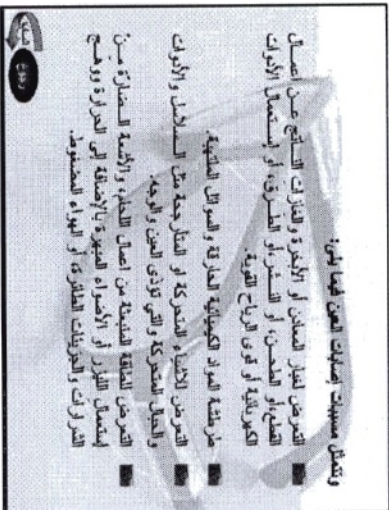 وتتمثل مسببات إصابات العين فيما يلى:
التعرض لغبار المعادن أو الأبخرة والغازات الناتج عن أعمال
القطع،أو الطحن، أو النشر،أو الطرق، أو إستعمال الأدوات
الكهربائية أو قوى الرياح القوية.
طرطشة المواد الكيميائية الحارقة والسوائل الملتهبة.
التعرض للاشياء المتحركة او المتأرجحة مثل السلاسل والأدوات
والحبال المتحركة والتي تؤذى العين والوجه.
التعرض للطاقة المنبعثة من اعمال اللحام، والأشعة الضارة من
إستعمال الليزر أو الأضواء المبهرة بالإضافة إلى الحرارة ووهج
الشرارات والجزيئات الطائرة، أو الهواء المضغوط.
رجوع